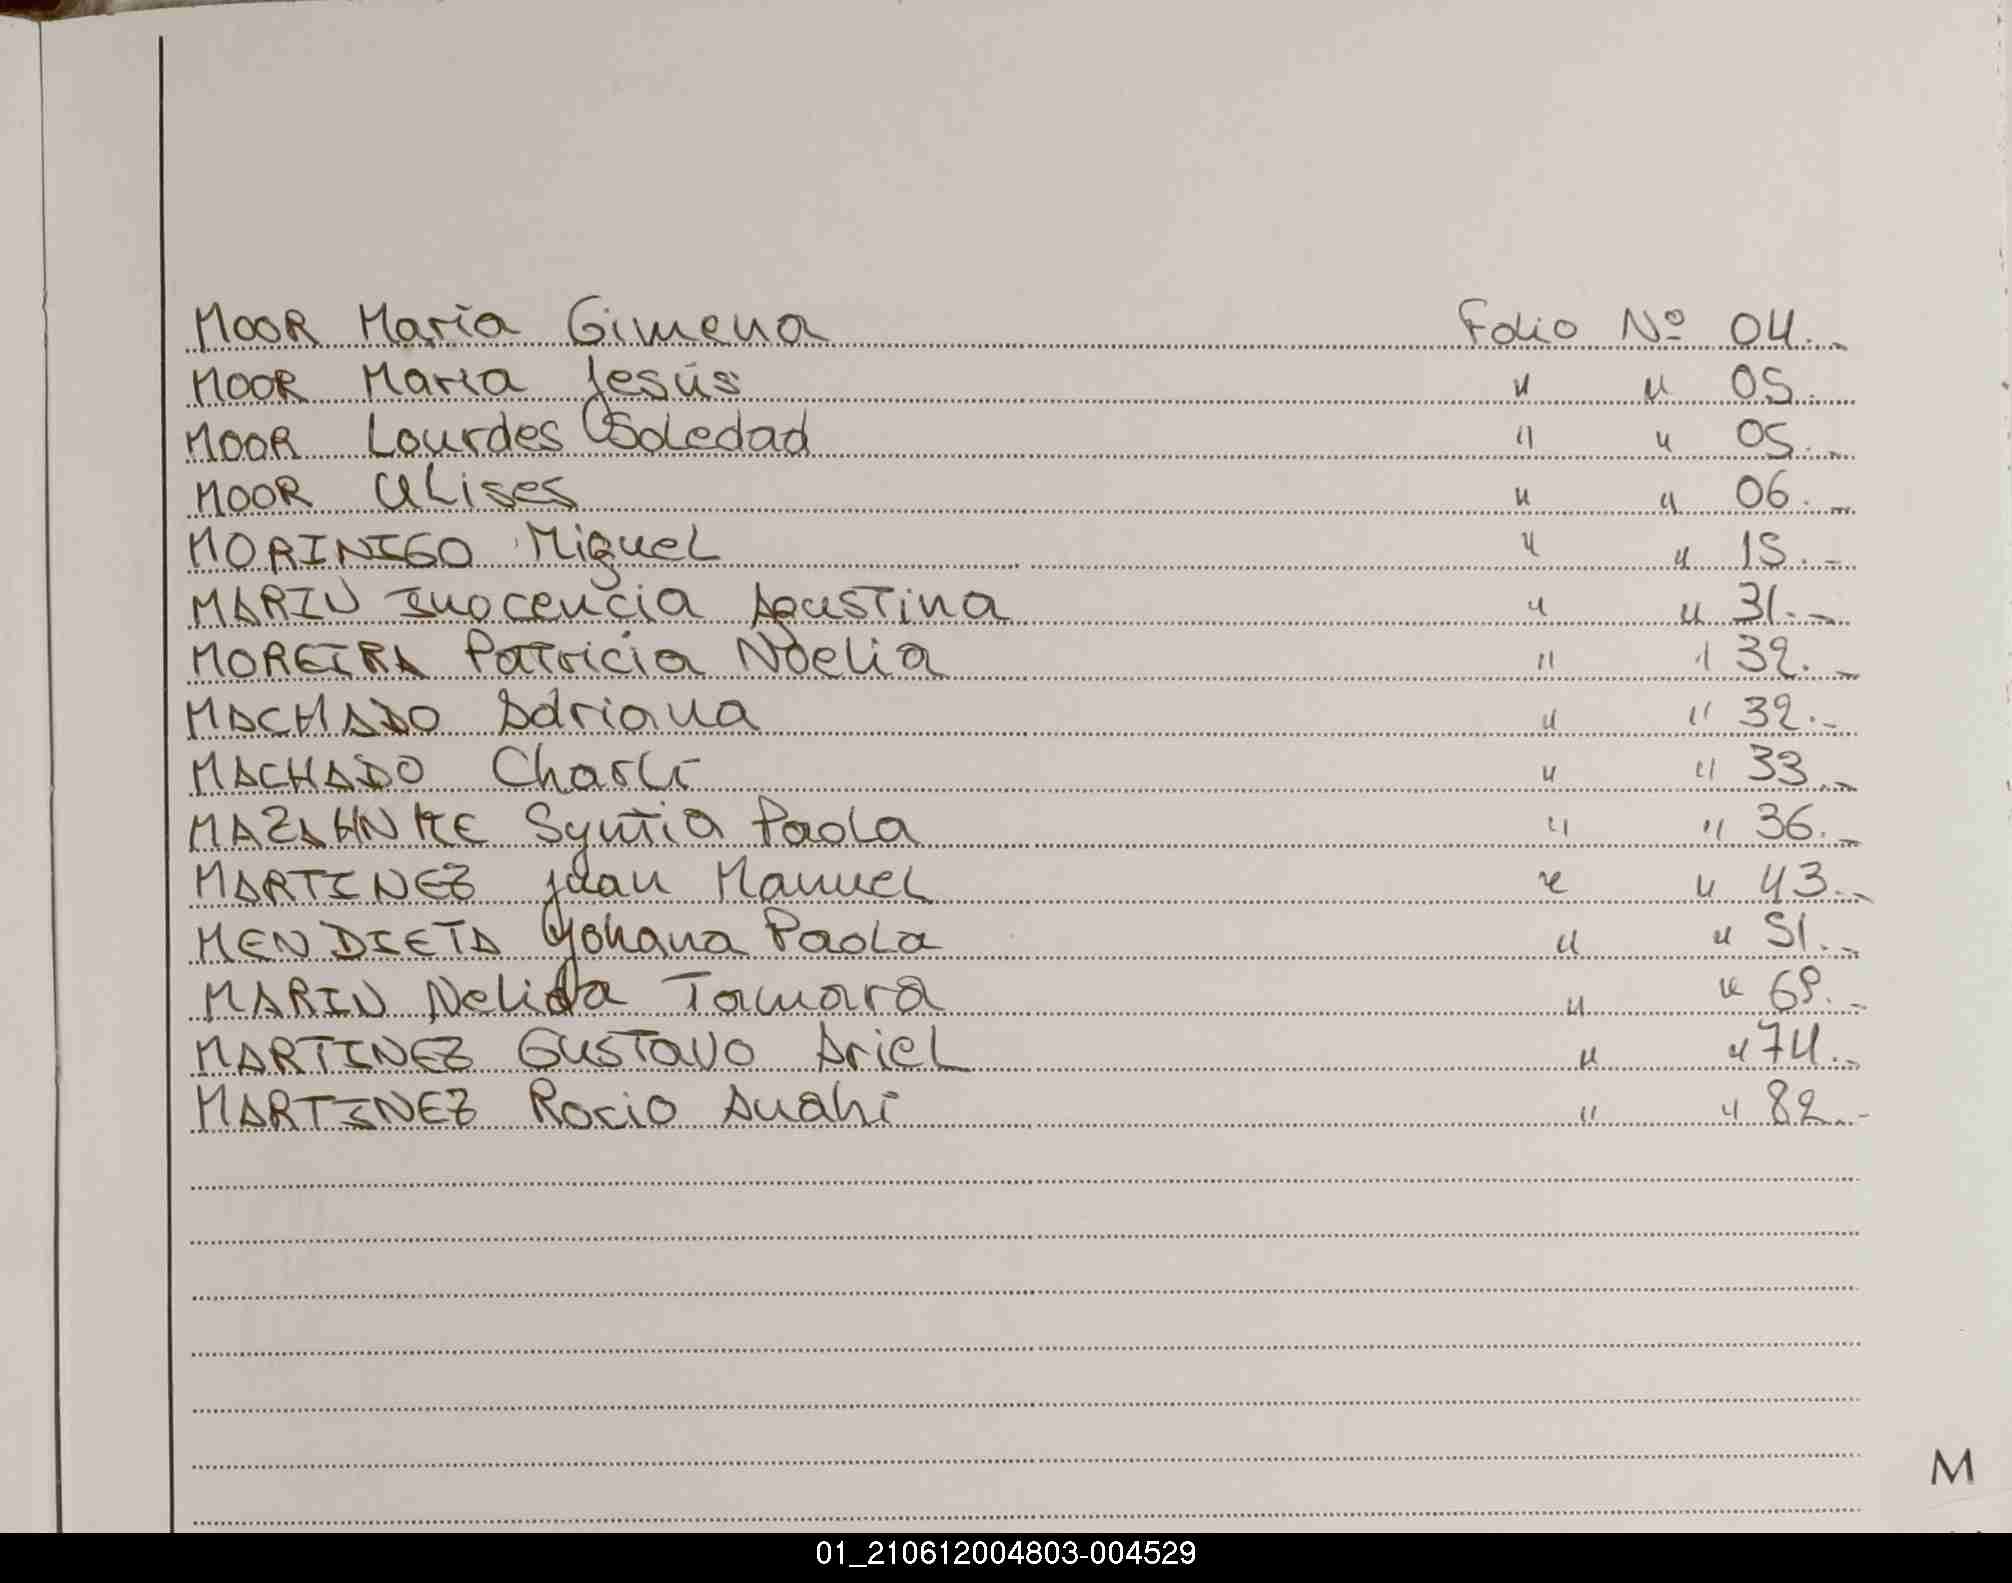 MOOR María Gimena Folio Nº 04.-
MOOR María Jesús " " 05.
MOOR Lourdes Soledad " " 05.-
MOOR Ulises " " 06.-
MORINIGO Miguel " " 15.-
MARIN Inocencia Agustina " " 31.-
MOREIRA Patricia Noelia " " 32.-
MACHADO Adriana " " 32.-
MACHADO Charli " " 33.-
MAZAHNKE Syntia Paola " " 36.-
MARTINEZ Juan Manuel " " 43.-
MENDIETA Yohana Paola " " 51.-
MARIN Nelida Tamara " " 69.-
MARTINEZ Gustavo Ariel " " 74.-
MARTINEZ Rocio Anahi " " 82.-
M
01_210612004803-004529